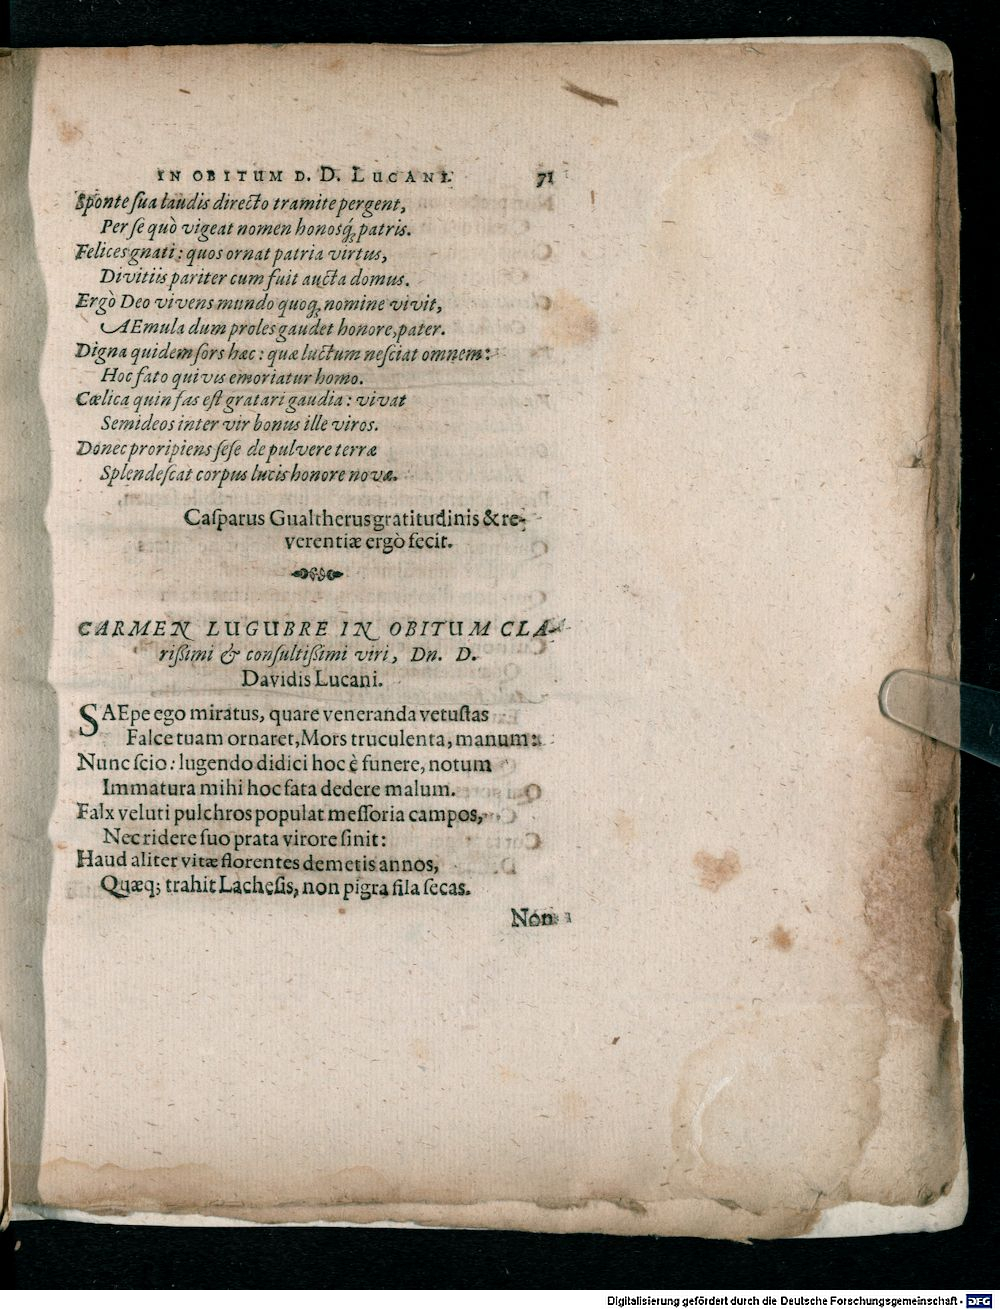 IN OBITUM D. D. LUCANI. 71
Sponte ſua laudis directo tramite pergent,
Per ſe quò vigeat nomen honosq́; patris.
Felices gnati: quos ornat patria virtus,
Divitiis pariter cum fuit aucta domus.
Ergò Deo vivens mundo quoq; nomine vivit,
AEmula dum proles gaudet honore, pater.
Digna quidem ſors hæc: quæ luctum neſciat omnem:
Hoc fato quivis emoriatur homo.
Cælica quin fas eſt gratari gaudia: vivat
Semideos inter vir bonus ille viros.
Donec proripiens ſeſe de pulvere terræ
Splendeſcat corpus lucis honore novæ.
Caſparus Gualtherus gratitudinis & re-
verentiæ ergò fecit.
CARMEN LUGUBRE IN OBITUM CLA-
rißimi & conſultißimi viri, Dn. D.
Davidis Lucani.
SAEpe ego miratus, quare veneranda vetuſtas
Falce tuam ornaret, Mors truculenta, manum:
Nunc ſcio: lugendo didici hoc è funere, notum
Immatura mihi hoc fata dedere malum.
Falx veluti pulchros populat meſſoria campos,
Nec ridere ſuo prata virore ſinit:
Haud aliter vitæ florentes demetis annos,
Quæq; trahit Lacheſis, non pigra fila ſecas.
Non
Digitalisierung gefördert durch die Deutsche Forschungsgemeinschaft - DFG